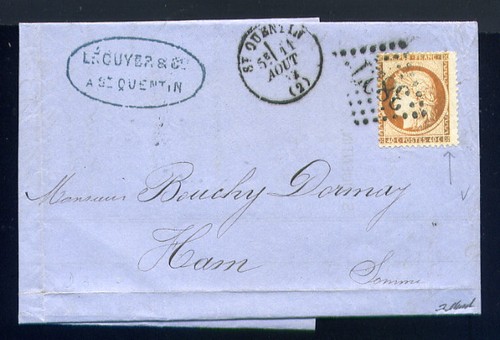 LÉCUYER & Cie
A St QUENTIN
ST QUENTIN
5E/ 11
AOUT
(2)
REPUB. FRANC.
40 C. POSTES 40 C.
Monsieur Bouchy Dormay
Ham
Somme